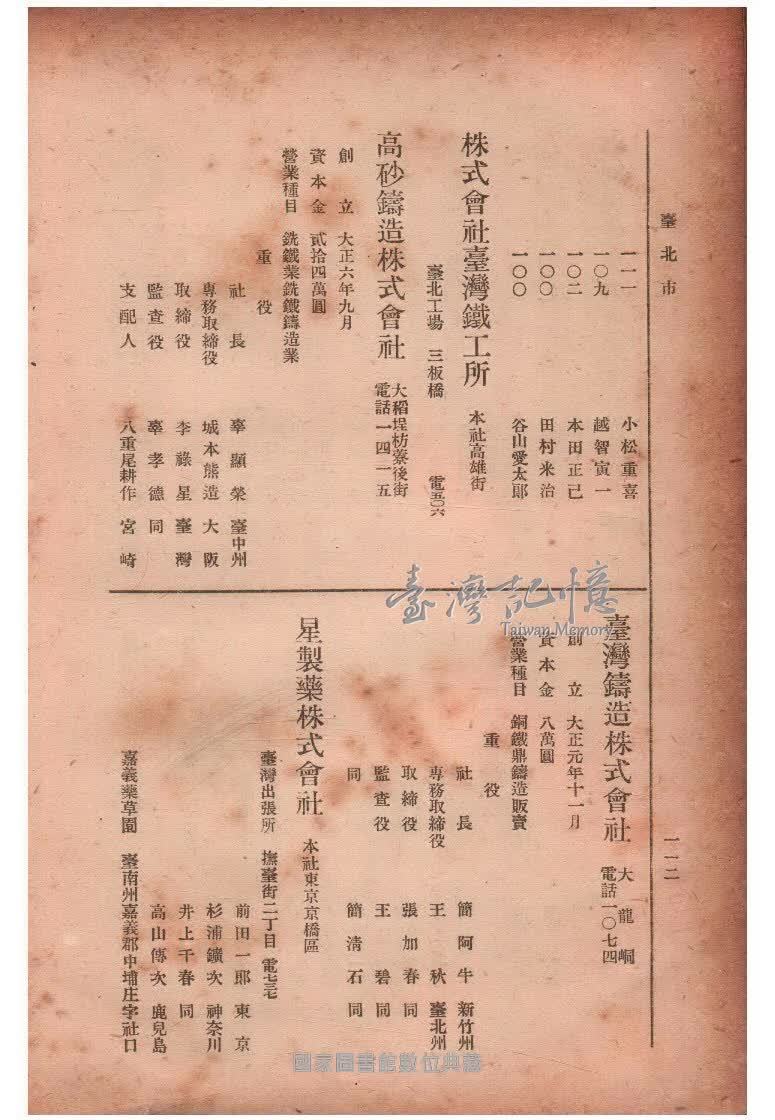 臺北市
一一二
一一一 小松重喜
一〇九 越智寅一
一〇二 本田正己
一〇〇 田村米治
一〇〇 谷山愛太郎
株式會社臺灣鐵工所 本社高雄街
臺北工場 三板橋 電五〇六
高砂鑄造株式會社 大稻埕枋寮後街
電話一四一五
創立 大正六年九月
資本金 貳拾四萬圓
營業種目 銑鐵業銑鐵鑄造業
重役
社長 辜顯榮 臺中州
專務取締役 城本熊造 大阪
取締役 李祿星 臺灣
監査役 辜孝德 同
支配人 八重尾耕作 宮崎
臺灣鑄造株式會社 大龍峒
電話一〇七四
創立 大正元年十一月
資本金 八萬圓
營業種目 銅鐵鼎鑄造販賣
重役
社長 簡阿牛 新竹州
專務取締役 王秋 臺北州
取締役 張加春 同
監査役 王碧 同
同 簡淸石 同
星製藥株式會社 本社東京京橋區
臺灣出張所 撫臺街二丁目 電七三七
前田一郎 東京
杉浦鑛次 神奈川
井上干春 同
高山傳次 鹿兒島
嘉義藥草園 臺南州嘉義郡中埔庄字社口
臺灣記憶
Taiwan Memory
國家圖書館數位典藏